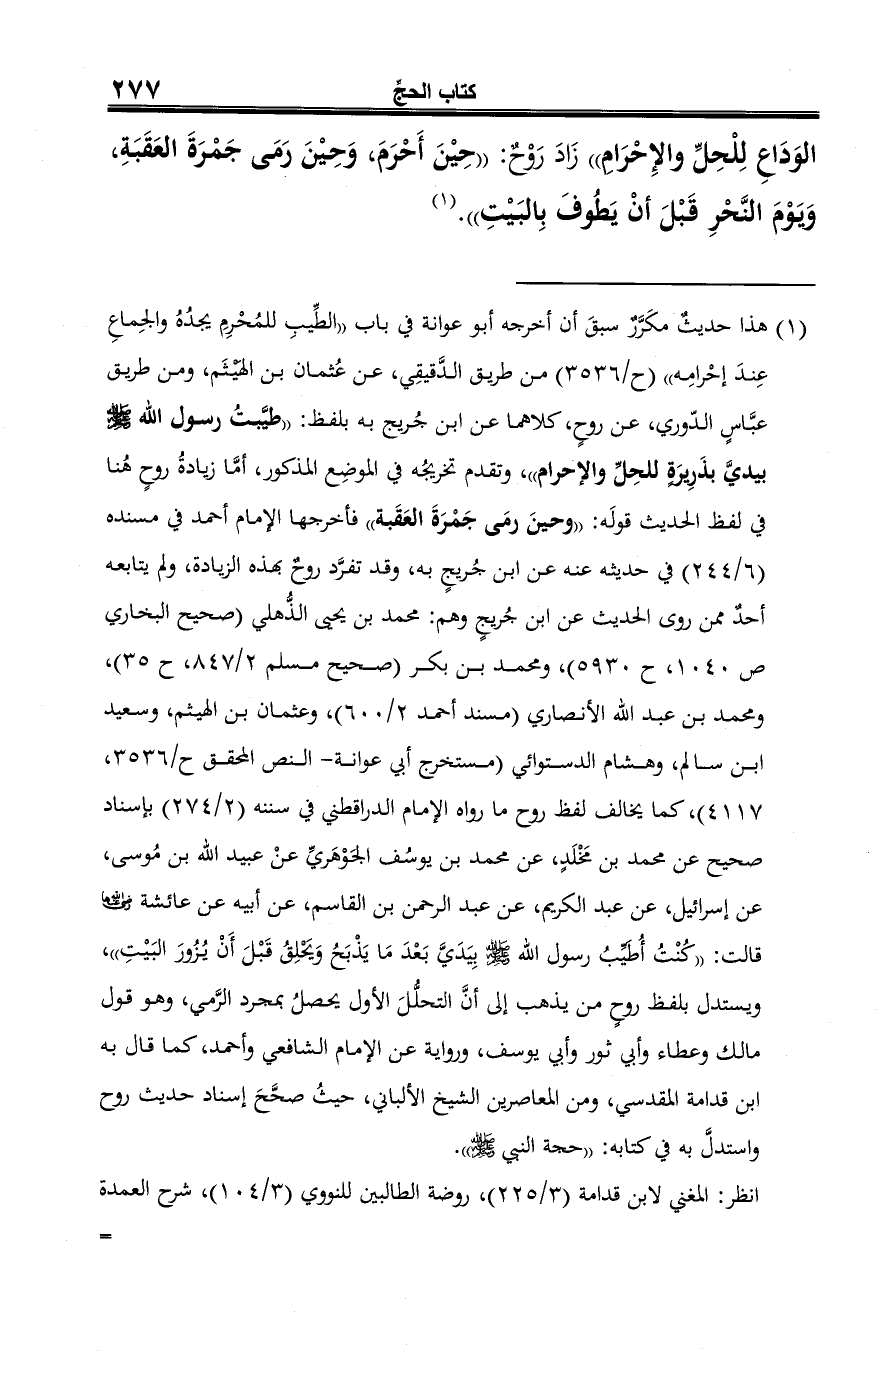 كتاب الحجّ ٢٧٧
الوَدَاعِ لِلْحِلِّ والإِحْرَامِ)) زَادَ رَوْحٌ: ((حِيْنَ أَحْرَمَ، وَحِيْنَ رَمَى جَمْرَةَ العَقَبَةِ،
وَيَوْمَ النَّحْرِ قَبْلَ أنْ يَطُوفَ بِالبَيْتِ)).(١)
(١) هذا حديثٌ مكَرَّرٌ سبقَ أن أخرجه أبو عوانة في باب ((الطِّيبِ للمُحْرِمِ يجدُهُ والجِماعِ
عِندَ إحْرامِه)) (ح/٣٥٣٦) من طريق الدَّقيقِي، عن عُثمان بن الهَيْثَم، ومن طريق
عبَّاسٍ الدّوري، عن روحٍ، كلاهما عن ابن جُريج به بلفظ: ((طيَّبتُ رسول الله ﷺ
بيديَّ بذَرِيرَةٍ للحِلِّ والإحرام))، وتقدم تخريجُه في الموضِع المذكور، أمَّا زيادةُ روحٍ هُنا
في لفظ الحديث قولَه: ((وحينَ رمَى جَمْرَةَ العَقَبة)) فأخرجها الإمام أحمد في مسنده
(٢٤٤/٦) في حديثه عنه عن ابن جُريجٍ به، وقد تفرَّد روحٌ بهذه الزيادة، ولم يتابعه
أحدٌ ممن روى الحديث عن ابن جُريجٍ وهم: محمد بن يحيى الذُّهلي (صحيح البخاري
ص ١٠٤٠، ح ٥٩٣٠)، ومحمد بن بكر (صحيح مسلم ٨٤٧/٢، ح ٣٥)،
ومحمد بن عبد الله الأنصاري (مسند أحمد ٦٠٠/٢)، وعثمان بن الهيثم، وسعيد
ابن سالم، وهشام الدستوائي (مستخرج أبي عوانة- النص المحقق ح/٣٥٣٦،
٤١١٧)، كما يخالف لفظ روح ما رواه الإمام الدراقطني في سننه (٢٧٤/٢) بإسناد
صحيح عن محمد بن مَخْلَدٍ، عن محمد بن يوسُف الجَوْهَريِّ عنْ عبيد الله بن مُوسى،
عن إسرائيل، عن عبد الكريم، عن عبد الرحمن بن القاسم، عن أبيه عن عائشة رضي الله عنها
قالت: ((كُنْتُ أُطَيِّبُ رسول الله ﷺ بِيَدَيَّ بَعْدَ مَا يَذْبَحُ وَيَحْلِقُ قَبْلَ أَنْ يُزُورَ البَيْتِ))،
ويستدل بلفظ روحٍ من يذهب إلى أنَّ التحلُّلَ الأول يحصلُ بمجرد الرَّمي، وهو قول
مالك وعطاء وأبي ثور وأبي يوسف، ورواية عن الإمام الشافعي وأحمد، كما قال به
ابن قدامة المقدسي، ومن المعاصرين الشيخ الألباني، حيثُ صحَّحَ إسناد حديث روح
واستدلَّ به في كتابه: ((حجة النبي ﷺ)).
انظر: المغني لابن قدامة (٢٢٥/٣)، روضة الطالبين للنووي (١٠٤/٣)، شرح العمدة
=